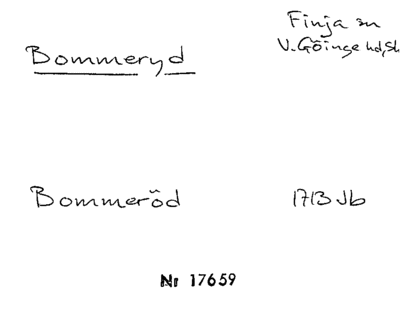 Finja sn
Bommeryd V. Göinge hd, Sk
Bommeröd 1713 Jb
Nr 17659